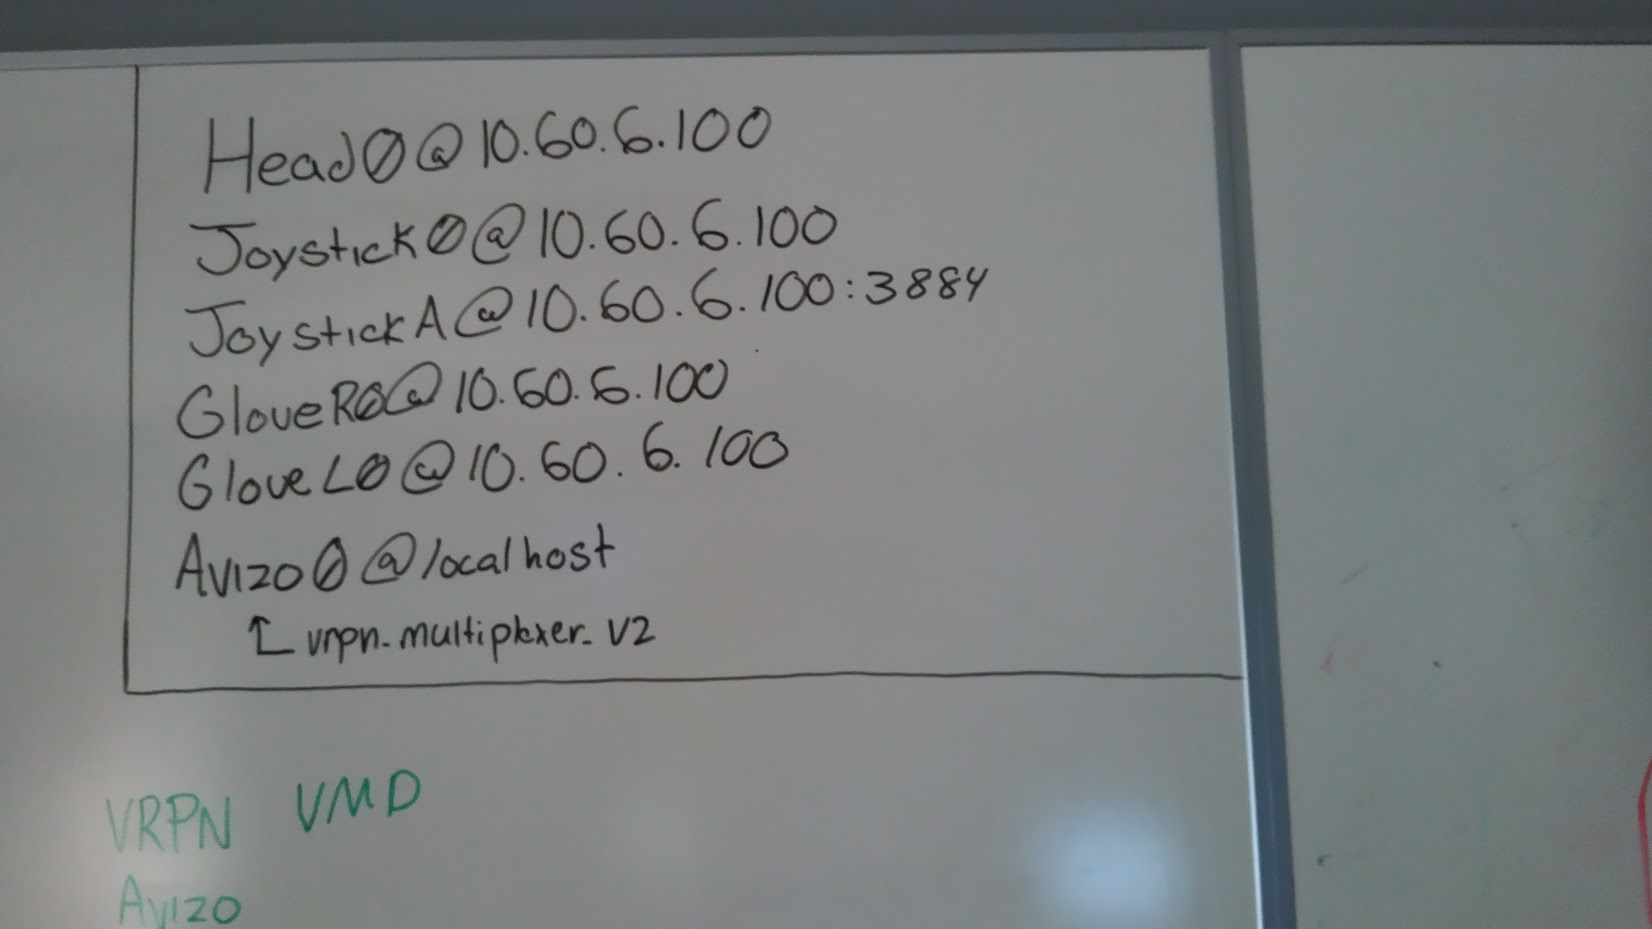 Head0@10.60.6.100
Joystick0@10.60.6.100
JoystickA@10.60.6.100:3884
GloveR0@10.60.6.100
GloveL0@10.60.6.100
Avizo0@localhost
vrpn_multiplexer_v2
VRPN VMD
Avizo